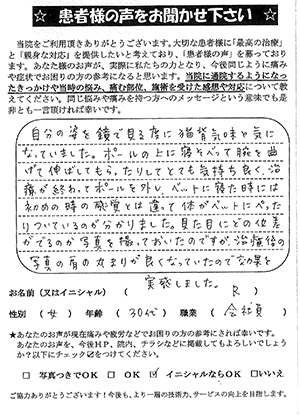 ☆ 患者様の声をお聞かせ下さい ☆
当院をご利用頂きありがとうございます。大切な患者様に「最高の治療」
と「親身な対応」を提供したいと考えており、「患者様の声」を募っており
ます。あなたの声が、実際に私たちの力となり、今後同じように痛み
や症状でお困りの方の参考になると思います。当院に通院するようになっ
たきっかけや当時の悩み、痛む部位、施術を受けた感想や対応について教
えてください。同じ悩みや痛みを持つ方へのメッセージという意味でも是
非とも一言頂ければ幸いです。
自分の姿を鏡で見る度に猫背気味と気に
なっていました。ポールの上に寝そべって腕を曲
げて伸ばしてもらったりしてとても気持ち良く、治
療が終わってポールを外し、ベットに寝た時には
初めの時の感覚とは違って体がベットにペった
りついているのが分かりました。見た目にどの位差
がでるのか写真を撮っておいたのですが、治療後の
写真の肩の丸まりが良くなっていたので効果を
実感しました。
お名前(又はイニシャル) ( R )
性別 ( 女 ) 年齢 ( 30代 ) 職業 ( 会社員 )
★あなたのお声が現在痛みや疲労などでお困りの方の参考にされます。
あなたのお声を、今後HP、院内、チラシなどに掲載してもよろしいでしょう
か?以下にチェック☑をつけてください。
□ 写真つきでOK □ OK ☑ イニシャルならOK □いいえ
ご協力ありがとうございます!今後も、より一層の技術力、サービスの向上を目指します。